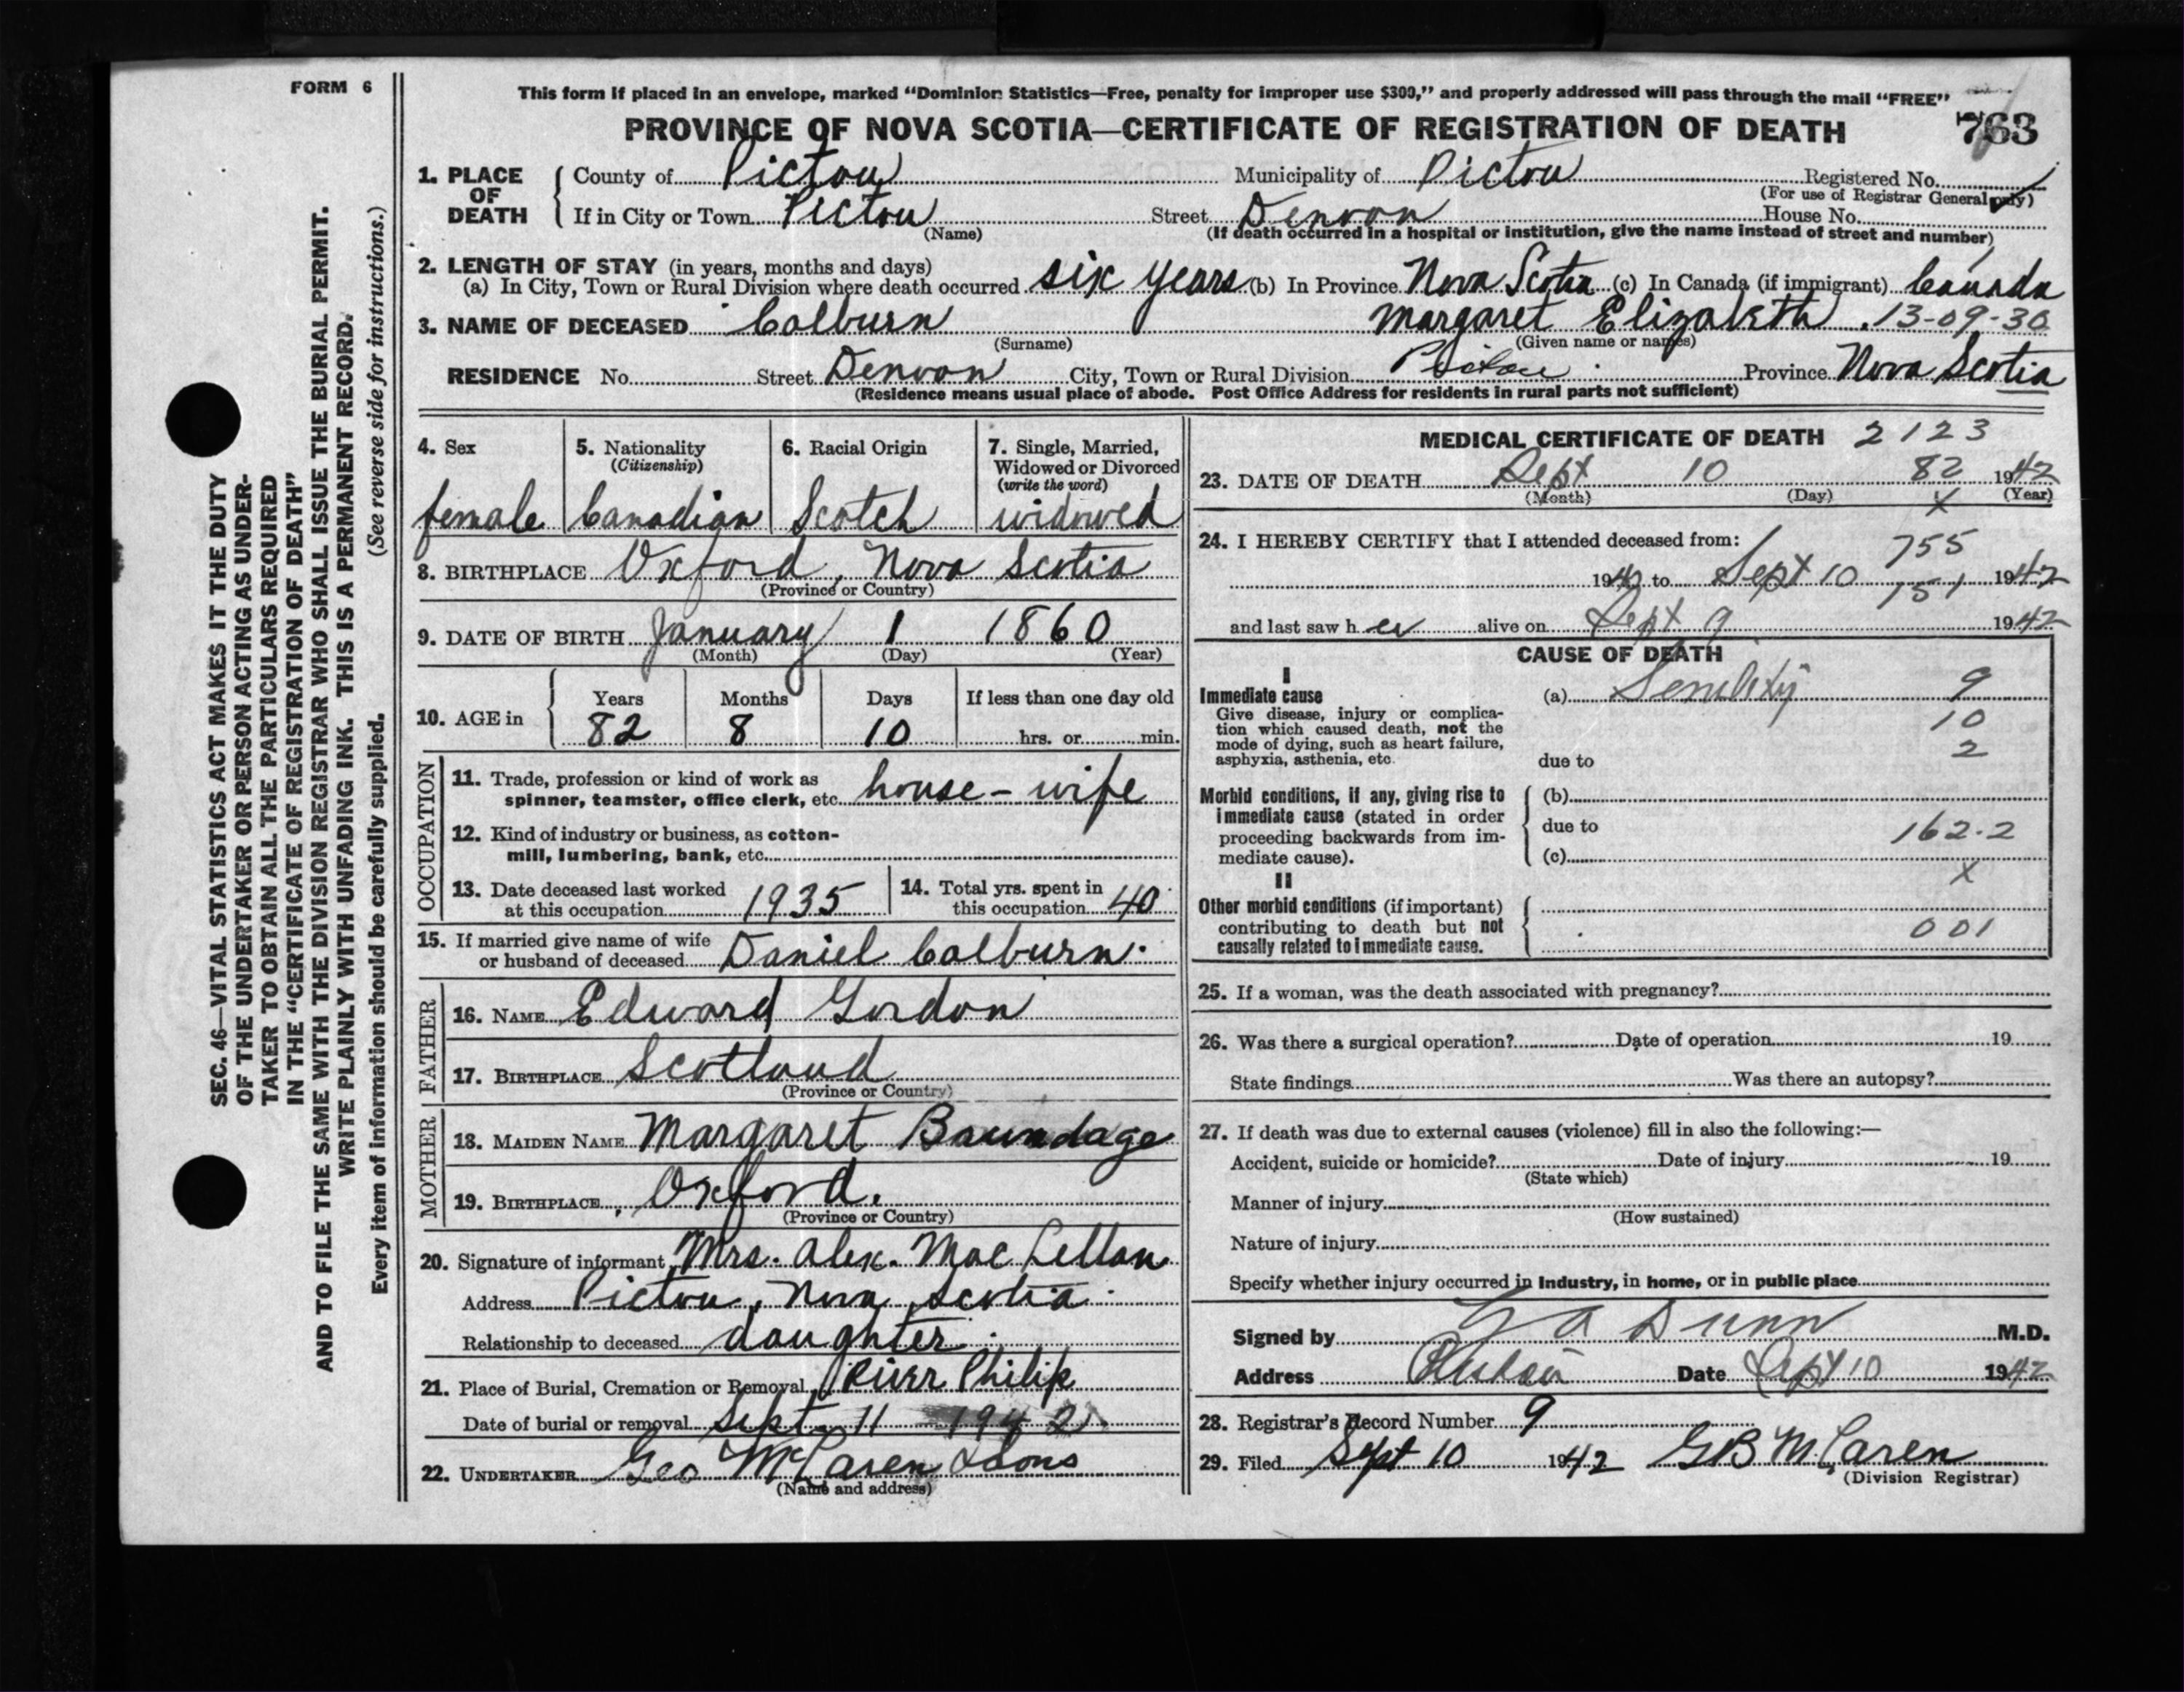 FORM 6
This form if placed in an envelope, marked “Dominion Statistics—Free, penalty for improper use $300,” and properly addressed will pass through the mail “FREE”
PROVINCE OF NOVA SCOTIA—CERTIFICATE OF REGISTRATION OF DEATH 763
1. PLACE OF DEATH { County of Pictou Municipality of Pictou Registered No.
(For use of Registrar General only)
If in City or Town Pictou Street Denoon House No.
(Name) (If death occurred in a hospital or institution, give the name instead of street and number)
2. LENGTH OF STAY (in years, months and days)
(a) In City, Town or Rural Division where death occurred six years (b) In Province Nova Scotia (c) In Canada (if immigrant) Canada
3. NAME OF DECEASED Colburn Margaret Elizabeth 13-09-30
(Surname) (Given name or names)
RESIDENCE No. Street Denoon City, Town or Rural Division Pictou Province Nova Scotia
(Residence means usual place of abode. Post Office Address for residents in rural parts not sufficient)
4. Sex 5. Nationality (Citizenship) 6. Racial Origin 7. Single, Married, Widowed or Divorced (write the word)
female Canadian Scotch widowed
8. BIRTHPLACE Oxford, Nova Scotia
(Province or Country)
9. DATE OF BIRTH January 1 1860
(Month) (Day) (Year)
10. AGE in { Years Months Days If less than one day old
82 8 10 hrs. or min.
OCCUPATION
11. Trade, profession or kind of work as
spinner, teamster, office clerk, etc. house - wife
12. Kind of industry or business, as cotton-
mill, lumbering, bank, etc.
13. Date deceased last worked at this occupation 1935 14. Total yrs. spent in this occupation 40
15. If married give name of wife
or husband of deceased Daniel Colburn.
FATHER
16. NAME Edward Gordon
17. BIRTHPLACE Scotland
(Province or Country)
MOTHER
18. MAIDEN NAME Margaret
19. BIRTHPLACE Oxford.
(Province or Country)
20. Signature of informant Mrs. Alex. MacLellan
Address Pictou, Nova Scotia.
Relationship to deceased daughter.
21. Place of Burial, Cremation or Removal River Philip
Date of burial or removal Sept. 11 1942
22. UNDERTAKER Geo McLaren & Sons
(Name and address)
MEDICAL CERTIFICATE OF DEATH 2123
23. DATE OF DEATH Sept 10 82 1942
(Month) (Day) X (Year)
24. I HEREBY CERTIFY that I attended deceased from: 755
1942 to Sept 10 151 1942
and last saw her alive on Sept 9 1942
CAUSE OF DEATH
I
Immediate cause (a) Senility 9
Give disease, injury or complica-
tion which caused death, not the 10
mode of dying, such as heart failure,
asphyxia, asthenia, etc. due to 2
Morbid conditions, if any, giving rise to (b)
immediate cause (stated in order
proceeding backwards from im- due to 162.2
mediate cause). (c)
II X
Other morbid conditions (if important)
contributing to death but not 001
causally related to immediate cause.
25. If a woman, was the death associated with pregnancy?
26. Was there a surgical operation? Date of operation 19
State findings Was there an autopsy?
27. If death was due to external causes (violence) fill in also the following:—
Accident, suicide or homicide? Date of injury 19
(State which)
Manner of injury
(How sustained)
Nature of injury
Specify whether injury occurred in Industry, in home, or in public place
Signed by G A Dunn M.D.
Address Date Sept 10 1942
28. Registrar's Record Number 9
29. Filed Sept 10 1942 GB McLaren
(Division Registrar)
SEC. 46—VITAL STATISTICS ACT MAKES IT THE DUTY
OF THE UNDERTAKER OR PERSON ACTING AS UNDER-
TAKER TO OBTAIN ALL THE PARTICULARS REQUIRED
IN THE “CERTIFICATE OF REGISTRATION OF DEATH”
AND TO FILE THE SAME WITH THE DIVISION REGISTRAR WHO SHALL ISSUE THE BURIAL PERMIT.
WRITE PLAINLY WITH UNFADING INK. THIS IS A PERMANENT RECORD.
Every item of information should be carefully supplied. (See reverse side for instructions.)